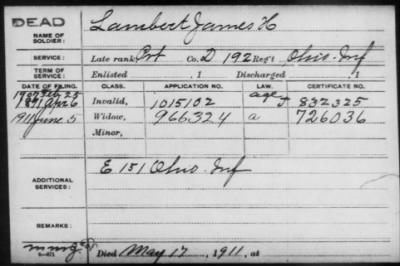 DEAD
NAME OF SOLDIER: Lambert James H
SERVICE: Late rank, Pvt Co. D 192 Reg't Ohio Inf
TERM OF SERVICE: Enlisted , 1 Discharged , 1
DATE OF FILING. CLASS. APPLICATION NO. LAW. CERTIFICATE NO.
1907 Feb 25 age
1891 Apr 6 Invalid, 1015102 J 832325
1911 June 5 Widow, 966.324 a 726036
Minor,
ADDITIONAL SERVICES: E 151 Ohio Inf
REMARKS:
Died May 17, 1911, at